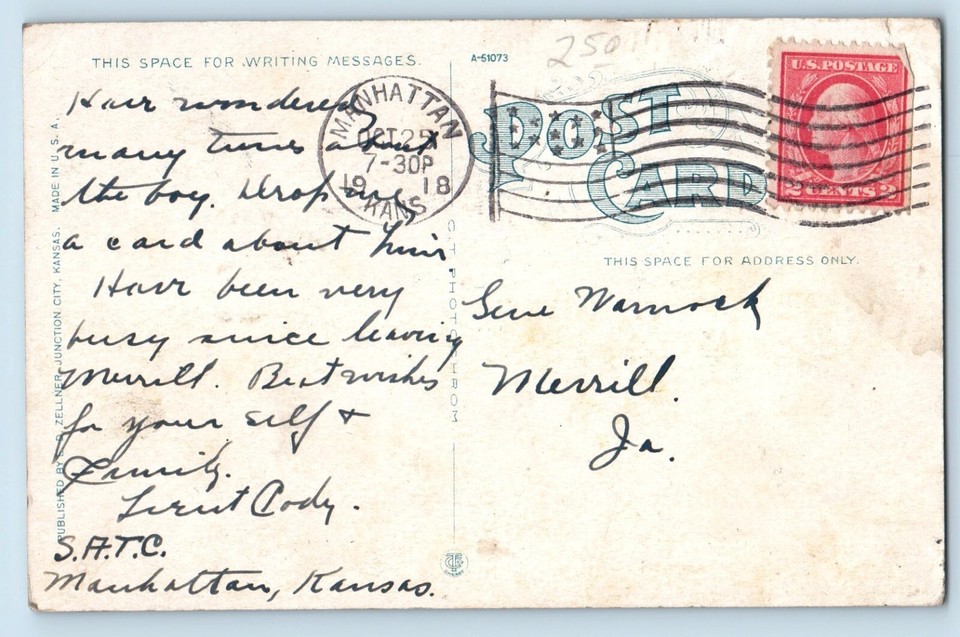 THIS SPACE FOR WRITING MESSAGES.
A-61073
250
Have wondered
many times about
the boy. Drop me
a card about him
Have been very
busy since leaving
Merrill. Best wishes
for your self +
Family.
Lieut Cody.
S.A.T.C.
Manhattan, Kansas.
MANHATTAN
OCT 25
7-30P
19 18
KANS
POST
CARD
U.S. POSTAGE
2 CENTS 2
THIS SPACE FOR ADDRESS ONLY.
Gene Warnock
Merrill.
Ia.
PUBLISHED BY ZELLNER, JUNCTION CITY, KANSAS. MADE IN U. S. A.
C.T. PHOTOCHROM